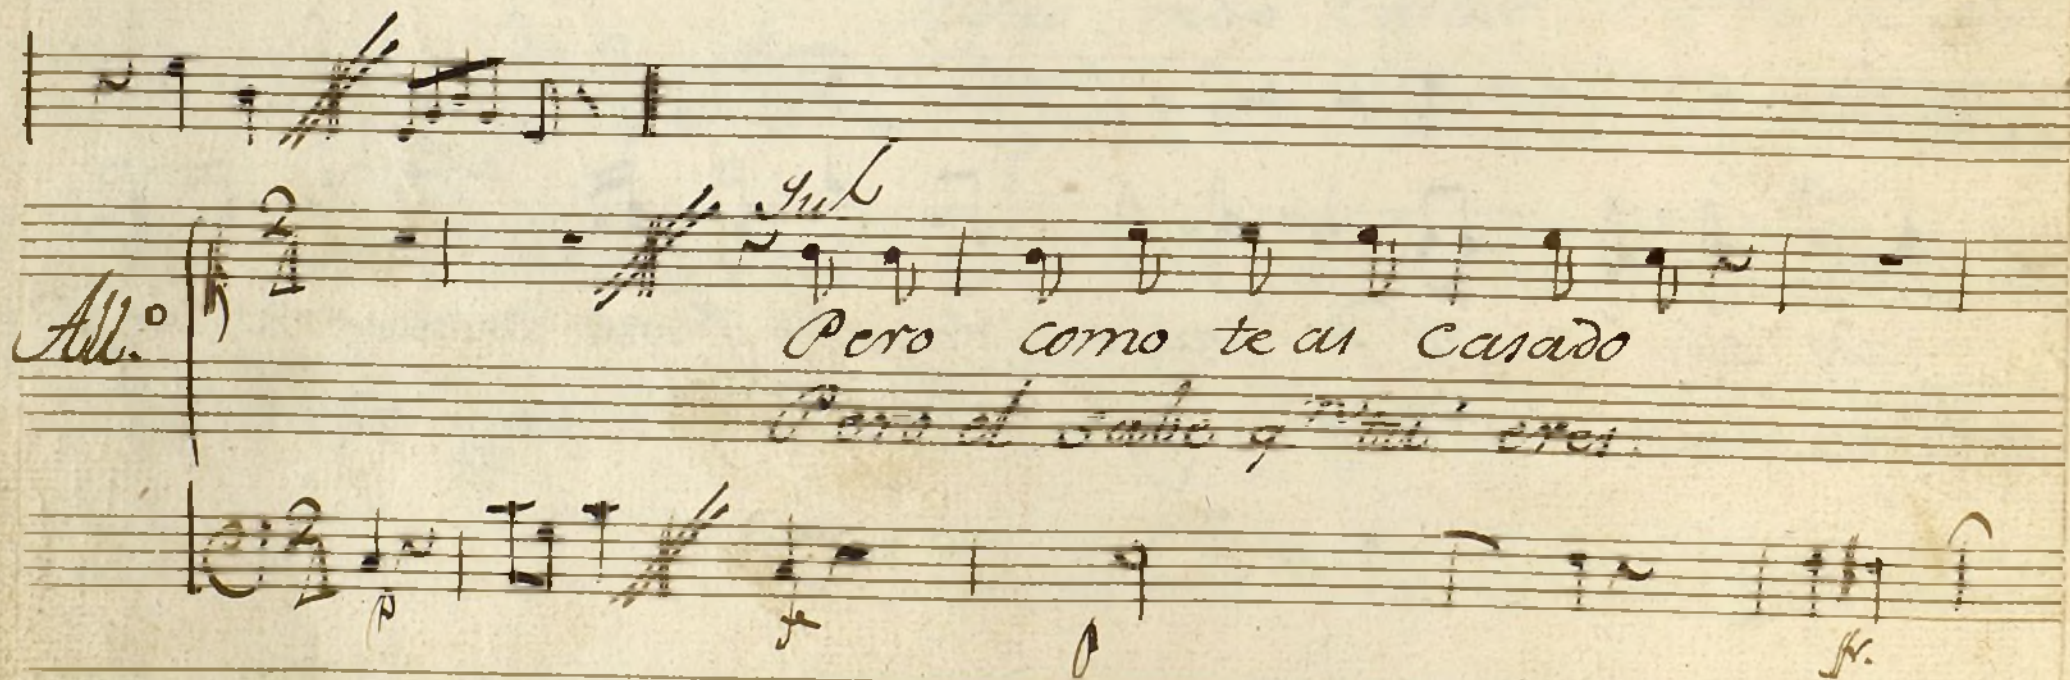 Jul
All.º
Pero como te as casado
Pero el sabe q eres
p f p fr.